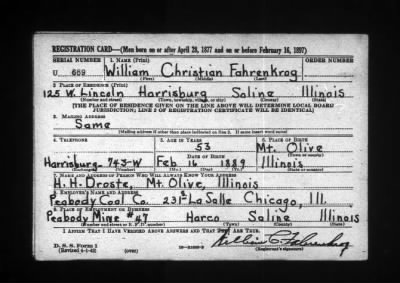 REGISTRATION CARD—(Men born on or after April 28, 1877 and on or before February 16, 1897)
SERIAL NUMBER 1. NAME (Print) ORDER NUMBER
U 659 William Christian Fahrenkrog
(First) (Middle) (Last)
2. PLACE OF RESIDENCE (Print)
125 W. Lincoln Harrisburg Saline Illinois
(Number and street) (Town, township, village, or city) (County) (State)
[THE PLACE OF RESIDENCE GIVEN ON THE LINE ABOVE WILL DETERMINE LOCAL BOARD
JURISDICTION; LINE 2 OF REGISTRATION CERTIFICATE WILL BE IDENTICAL]
3. MAILING ADDRESS
Same
[Mailing address if other than place indicated on line 2. If same insert word same]
4. TELEPHONE 5. AGE IN YEARS 6. PLACE OF BIRTH
53 Mt. Olive
DATE OF BIRTH (Town or county)
Harrisburg 743-W Feb 16 1889 Illinois
(Mo.) (Day) (Yr.) (State or country)
7. NAME AND ADDRESS OF PERSON WHO WILL ALWAYS KNOW YOUR ADDRESS
H. H. Droste, Mt. Olive, Illinois
8. EMPLOYER'S NAME AND ADDRESS
Peabody Coal Co. 231 La Salle Chicago, Ill.
9. PLACE OF EMPLOYMENT OR BUSINESS
Peabody Mine #47 Harco Saline Illinois
(Number and street or R. F. D. number) (Town) (County) (State)
I AFFIRM THAT I HAVE VERIFIED ABOVE ANSWERS AND THAT THEY ARE TRUE.
D. S. S. Form 1
(Revised 4-1-42) (over) William C. Fahrenkrog
(Registrant's signature)